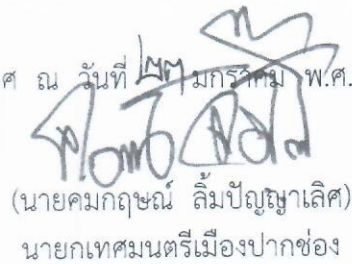 ศ ณ วันที่ ๒๗ มกราคม พ.ศ.
(นายคมกฤษณ์ ลิ้มปัญญาเลิศ)
นายกเทศมนตรีเมืองปากช่อง